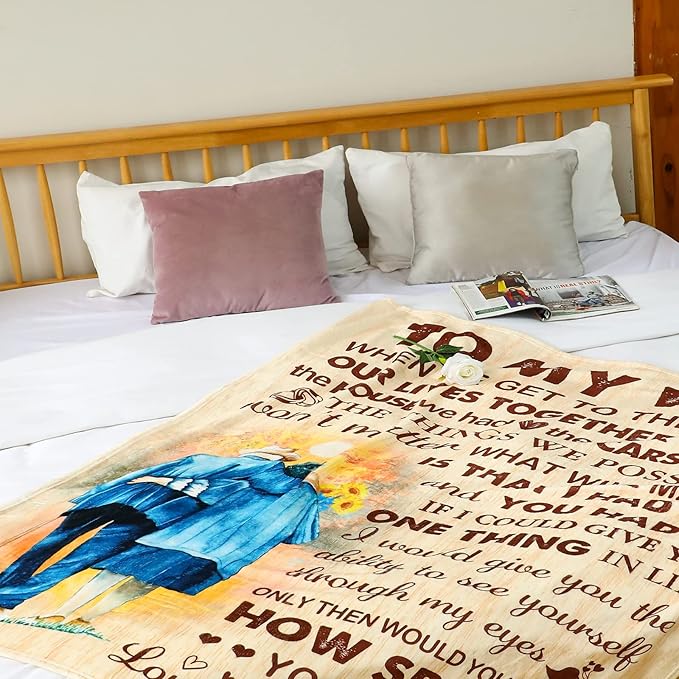 TO MY
WHEN GET TO TH
OUR LIVES TOGETHER
the HOUSE we had the CARS
THE THINGS WE POSS
won't matter WHAT WILL
IS THAT I HAD
and YOU HAD
IF I COULD GIVE
ONE THING IN LI
I would give you the
ability to see yourself
through my eyes
ONLY THEN WOULD YOU
HOW SP
YO
WHAT IS REAL ETHI